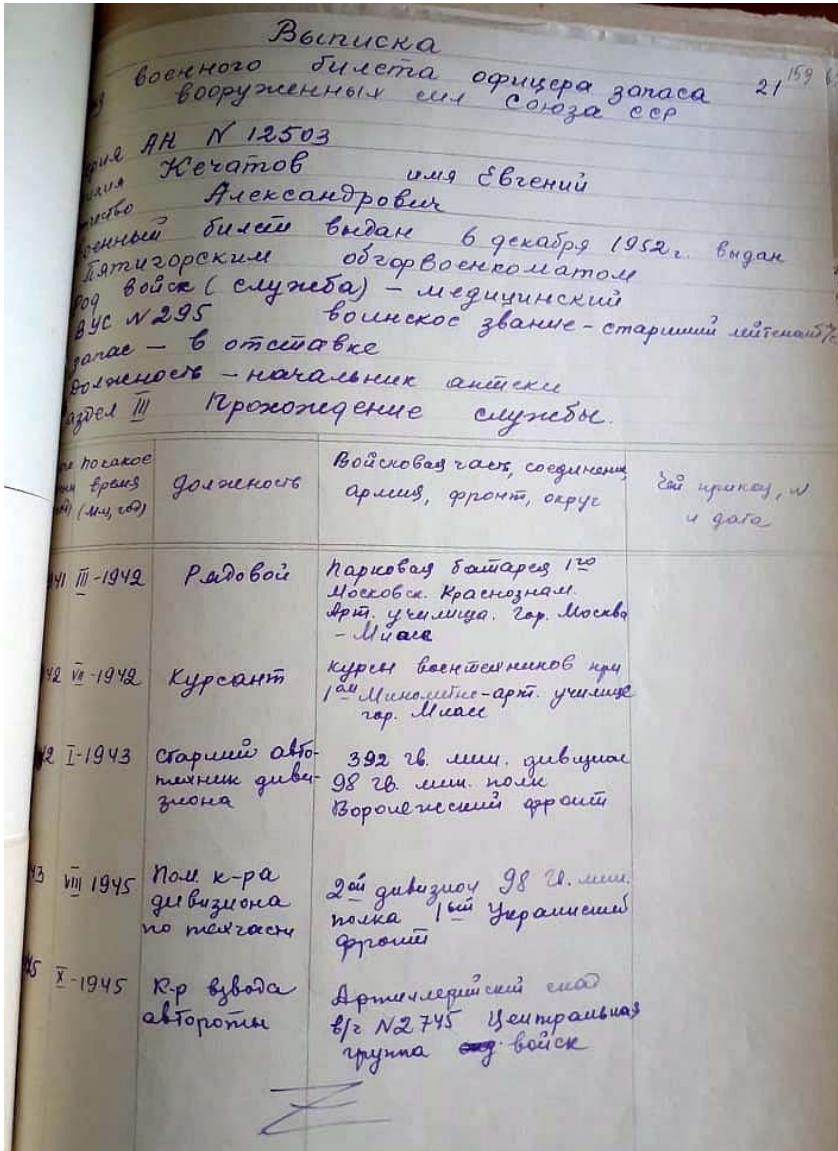 Выписка
военного билета офицера запаса 21 159
вооруженных сил Союза ССР
АН N 12503
Кечатов имя Евгений
Александрович
билет выдан 6 декабря 1952 г. выдан
Пятигорским обгорвоенкоматом
род войск (служба) – медицинский
ВУС N 295 воинское звание – старший лейтенант
запас – в отставке
должность – начальник аптеки
III Прохождение службы.
по какое
время
(м-ц, год)
Должность
Войсковая часть, соединение,
армия, фронт, округ
Чей приказ, N
и дата
III-1942
Рядовой
Парковая батарея 1го
Московск. Краснознам.
Арт. училища. Гор. Москва
– Миасс
VII-1942
Курсант
курсы воентехников при
1ом Минометно-арт. училище
гор. Миасс
I-1943
Старший авто-
техник диви-
зиона
392 гв. мин. дивизион
98 гв. мин. полк
Воронежский фронт
VIII 1945
Пом. к-ра
дивизиона
по техчасти
2ой дивизион 98 гв. мин.
полка 1ый Украинский
фронт
X-1945
К-р взвода
автороты
Артиллерийский склад
в/ч N2745 Центральная
группа войск